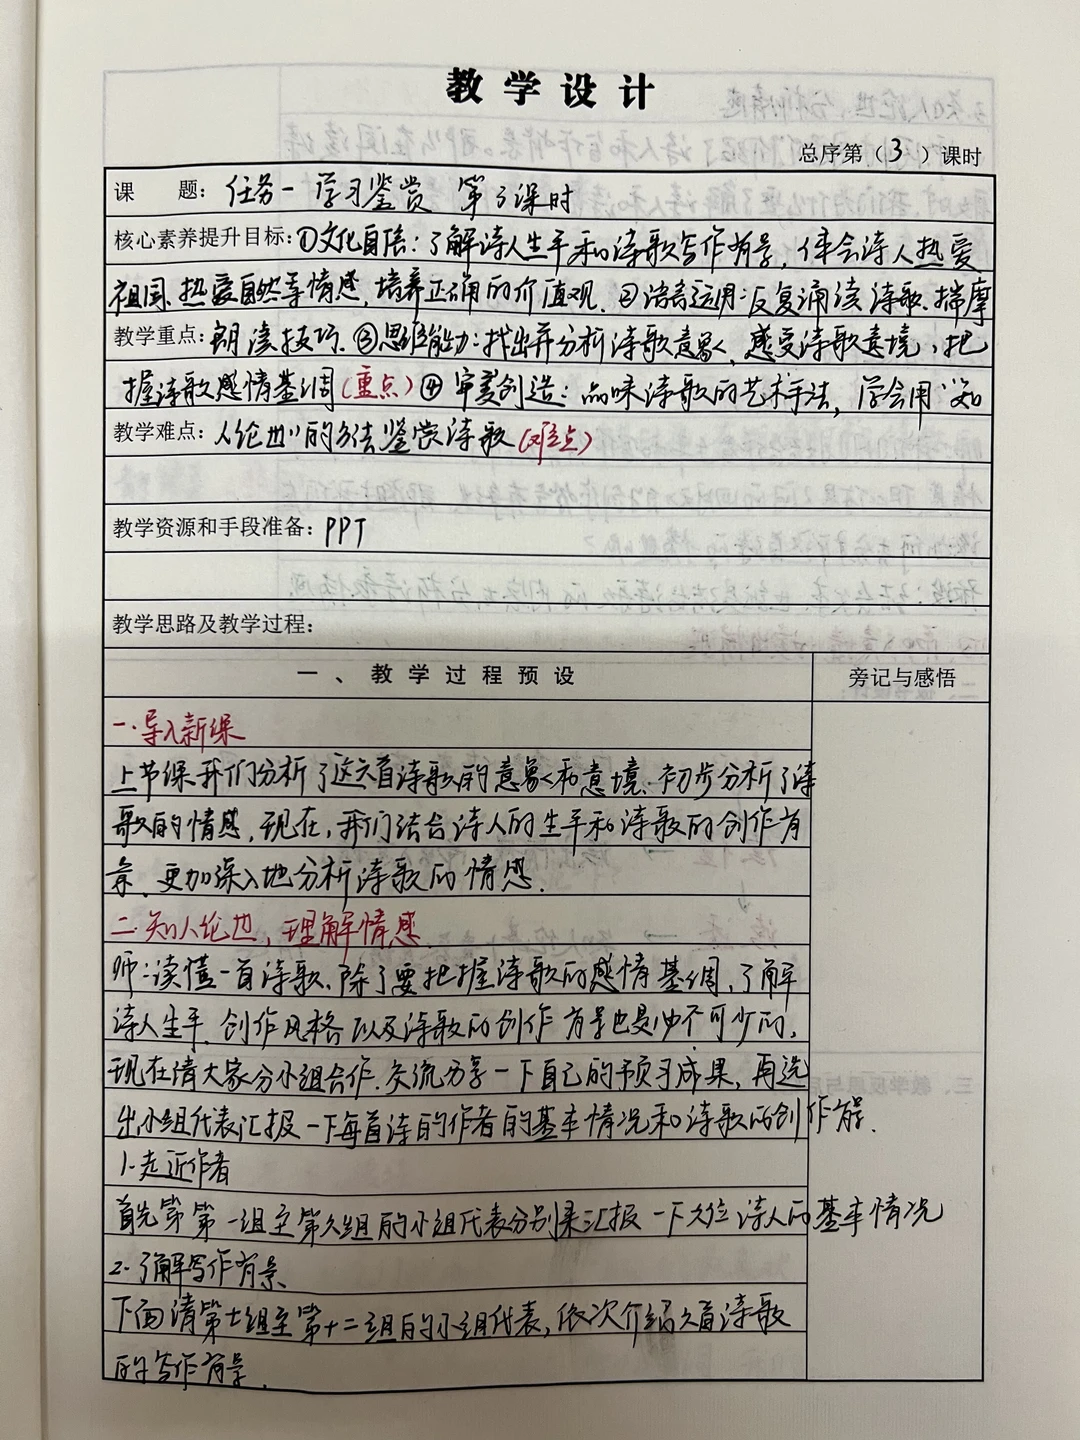 教学设计
总序第（3）课时
课 题：任务一 学习鉴赏 第3课时
核心素养提升目标：①文化自信：了解诗人生平和诗歌写作背景，体会诗人热爱
祖国、热爱自然等情感，培养正确的价值观。②语言运用：反复诵读诗歌，揣摩
教学重点：朗读技巧。③思维能力：找出并分析诗歌意象，感受诗歌意境，把
握诗歌感情基调（重点）④审美创造：品味诗歌的艺术手法，学会用“知
教学难点：人论世”的方法鉴赏诗歌（难点）
教学资源和手段准备：PPT
教学思路及教学过程：
一、教学过程预设
旁记与感悟
一.导入新课
上节课我们分析了这六首诗歌的意象和意境，初步分析了诗
歌的情感，现在，我们结合诗人的生平和诗歌的创作背
景，更加深入地分析诗歌的情感。
二.知人论世，理解情感
师：读懂一首诗歌，除了要把握诗歌的感情基调，了解
诗人生平、创作风格以及诗歌的创作背景也是必不可少的，
现在请大家分小组合作，交流分享一下自己的预习成果，再选
出小组代表汇报一下每首诗的作者的基本情况和诗歌的创作背景.
1.走近作者
首先第第一组至第六组的小组代表分别来汇报一下六位诗人的基本情况
2.了解写作背景
下面请第七组至第十二组的小组代表，依次介绍六首诗歌
的写作背景.